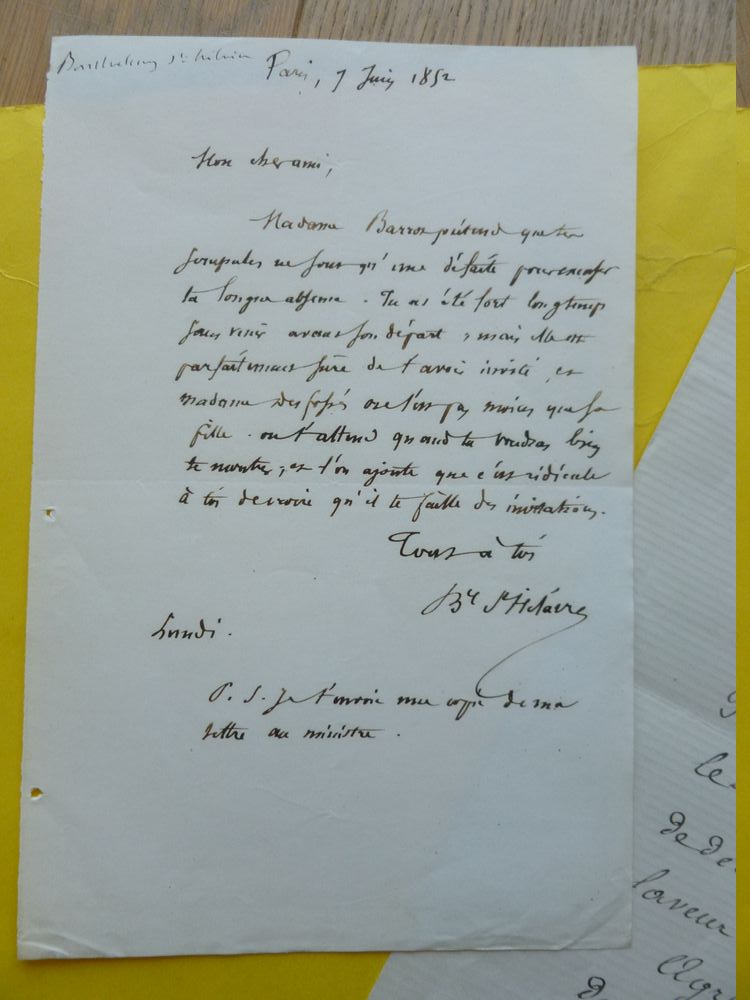 Barthelemy St hilaire
Paris, 7 Juin 1852
Mon cher ami,
Madame Barrot prétend que tes
scrupules ne sont qu'une défaite pour excuser
ta longue absence. Tu as été fort longtemps
sans venir avant son départ ; mais elle est
parfaitement sûre de t'avoir invité, et
madame Desfossés ne l'est pas moins que sa
fille. on t'attend quand tu voudras bien
te montrer ; et l'on ajoute que c'est ridicule
à toi de croire qu'il te faille des invitations.
Tout à toi
By St Hilaire
Lundi.
P. S. Je t'envoie une copie de ma
lettre au ministre.
le
de de
faveur